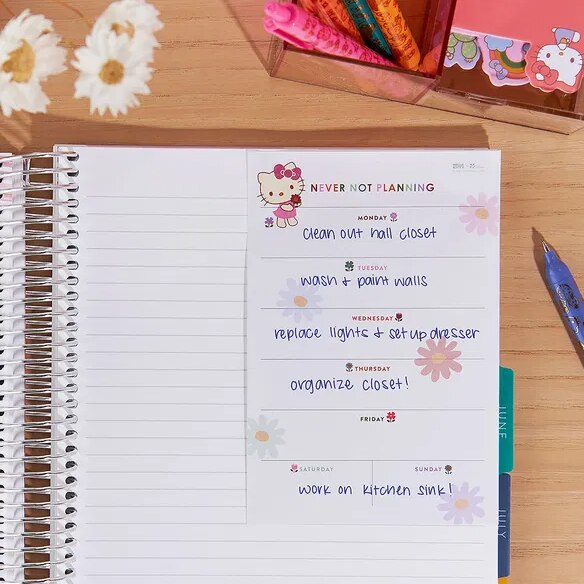 NEVER NOT PLANNING
MONDAY
Clean out hall closet
TUESDAY
wash & paint walls
WEDNESDAY
replace lights & set up dresser
THURSDAY
organize closet!
FRIDAY
SATURDAY SUNDAY
work on kitchen sink!
JUNE
JULY